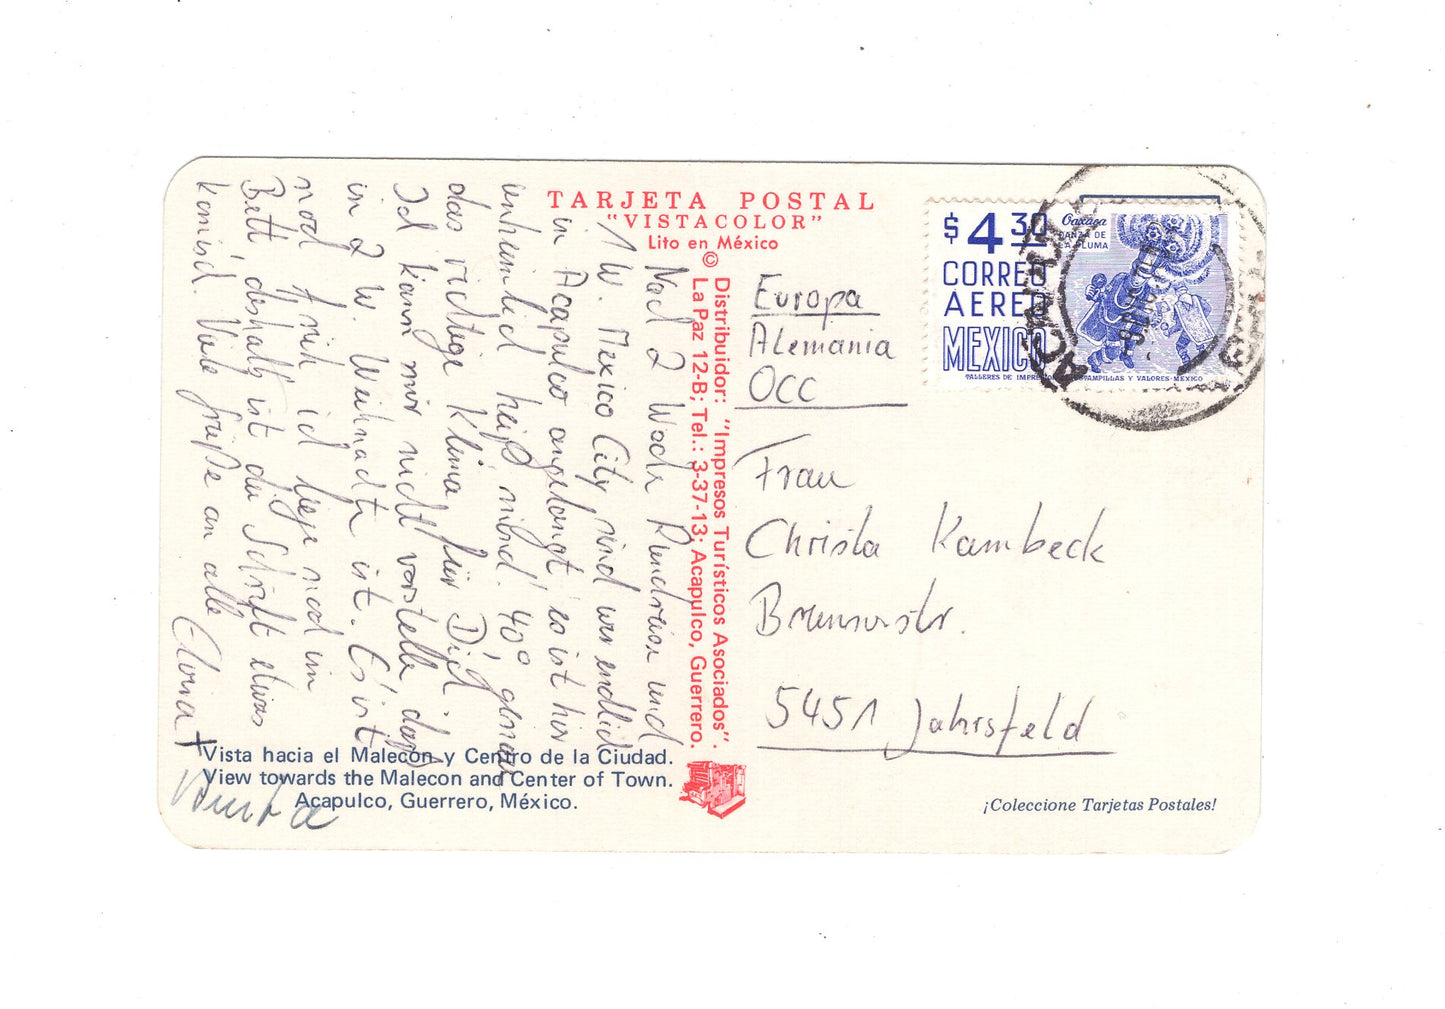 TARJETA POSTAL
"VISTACOLOR"
Lito en México
©
Distribuidor: "Impresos Turísticos Asociados".
La Paz 12-B; Tel.: 3-37-13; Acapulco, Guerrero.
Nach 2 Woch Rundreise und
1 W. Mexico City, sind wir endlich
in Acapulco angelangt, es ist hier
unheimlich heiß, mind. 40°, genau
das richtige Klima für Dich.
Ich kann mir nicht vorstellen daß
in 2 W. Weihnachten ist. Es ist
noch früh, ich liege noch im
Bett, deshalb ist die Schrift etwas
komisch. Viele Grüße an alle
$4.30
CORREO
AEREO
MEXICO
Oaxaca
DANZA DE
LA PLUMA
TALLERES DE IMPRESION DE ESTAMPILLAS Y VALORES-MEXICO
Europa
Alemania
OCC
Frau
Christa Kambeck
5451 Jahrsfeld
Vista hacia el Malecón y Centro de la Ciudad.
View towards the Malecon and Center of Town.
Acapulco, Guerrero, México.
¡Coleccione Tarjetas Postales!